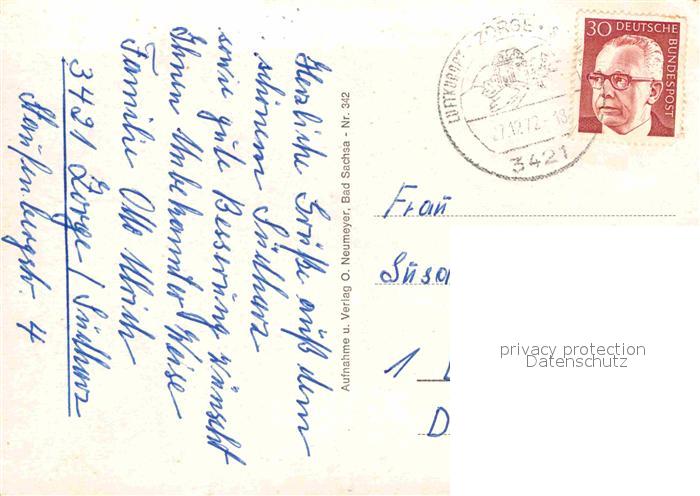 Herzliche Grüße auß dem
schönem Südharz
sowie gute Besserung wünscht
Ihnen Unbekannter Weise
Familie Otto Ulrich
3421 Zorge / Südharz
Staufenbergstr. 4
Aufnahme u. Verlag O. Neumeyer, Bad Sachsa - Nr. 342
LUFTKURORT · ZORGE ·
27.12.72 - 18
3421
30 DEUTSCHE
BUNDESPOST
Frau
Susa
1
D
privacy protection
Datenschutz